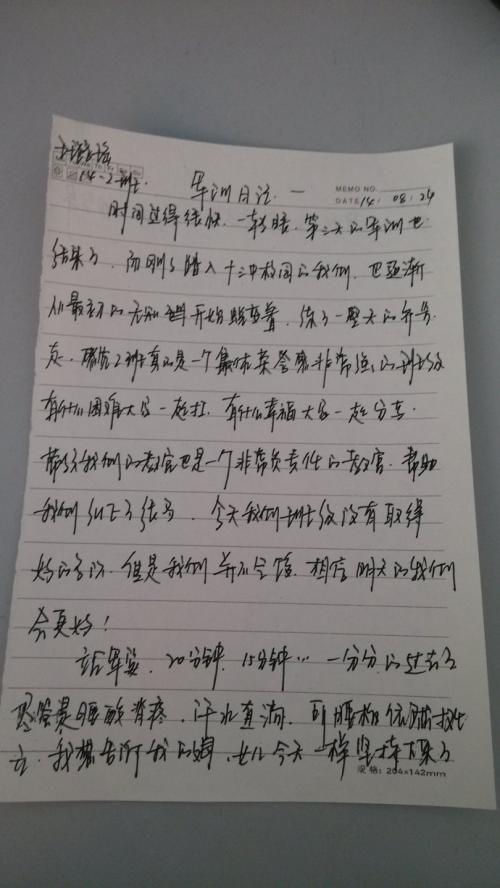 14-2班
军训日记 一
MEMO NO.
DATE 14 / 08 / 24
时间过得很快,一转眼,第三天的军训也
结束了,而刚刚踏入十三中校园的我们,也逐渐
从最初的无知开始蜕变着,练了一整天的
2班真的是一个集体荣誉非常强的班级
有什么困难大家一起扛,有什么幸福大家一起分享.
带领我们的教官也是一个非常负责任的教官,帮助
我们纠正了 今天我们班级没有取得
好的 但是我们并不会 相信明天的我们
会更好!
站军姿,20分钟,15分钟… 一分分的过去了
尽管是腰酸背疼,汗水直流,可腰板依
立,我想告诉我的妈,女儿今天一样坚持下来了
规格:204×142mm